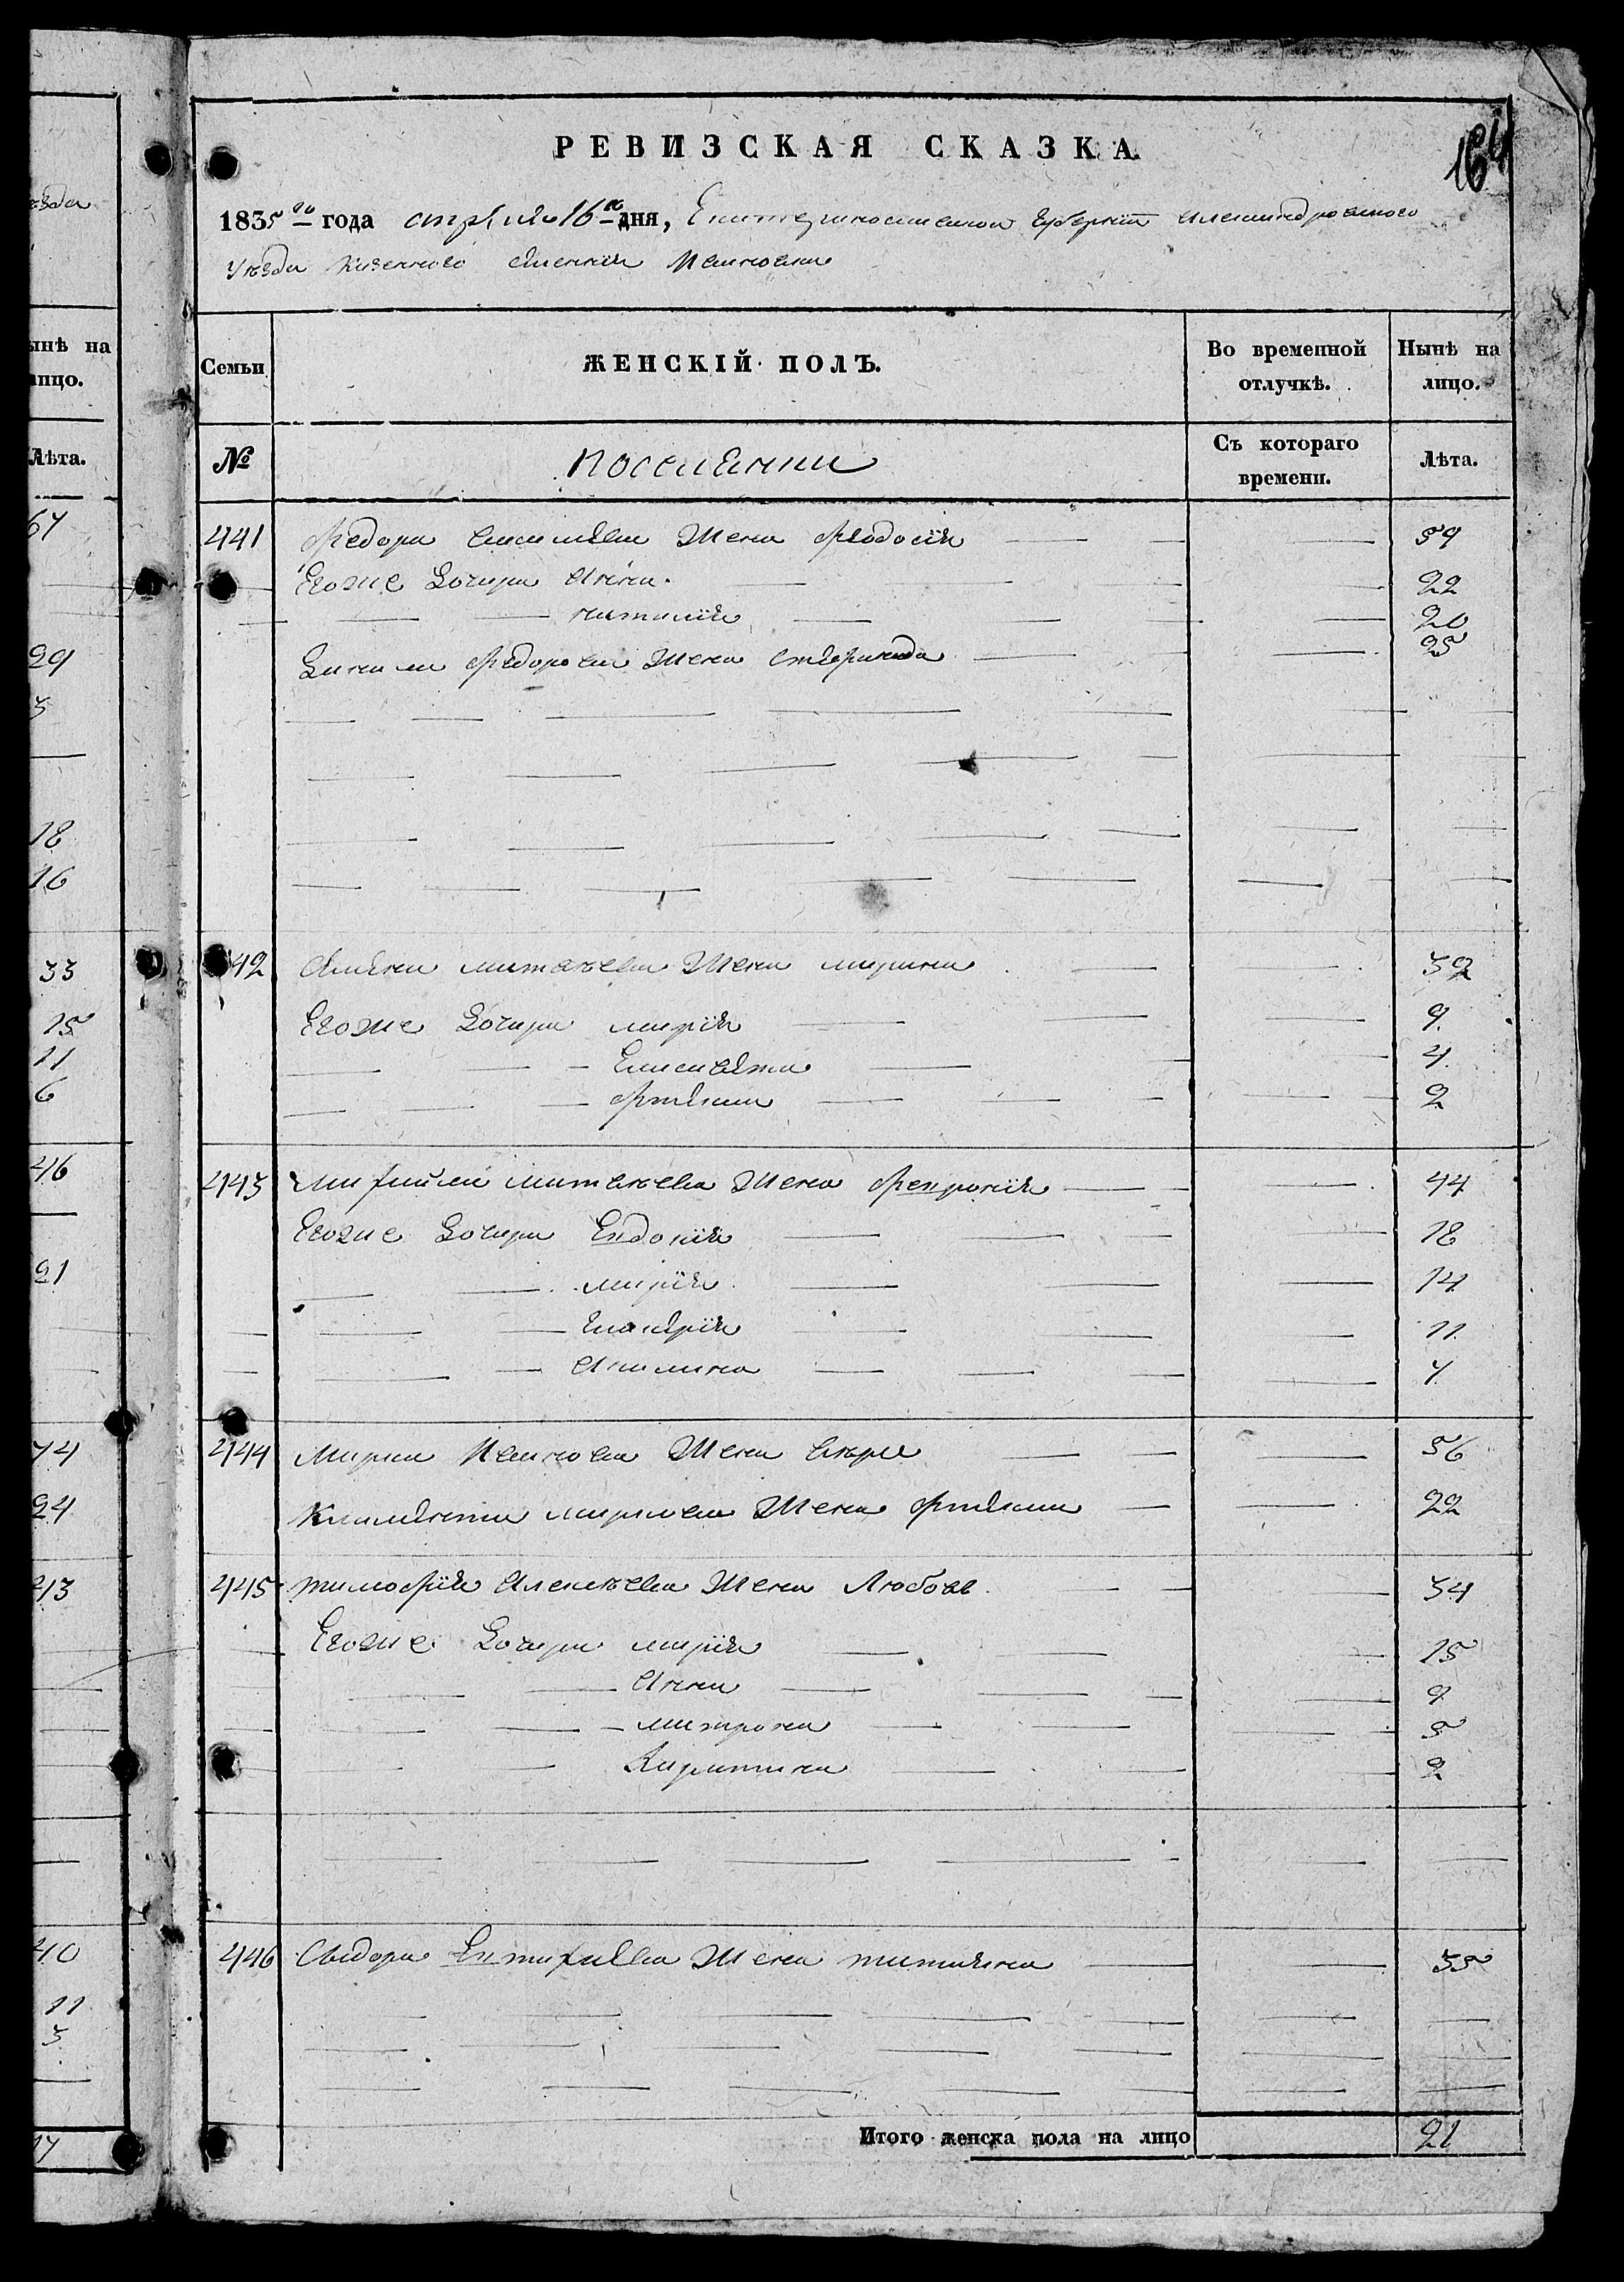 РЕВИЗСКАЯ СКАЗКА.
164
1835 го года апреля 16 дня, Екатеринославской Губернии Александровского
Уезда Казенного селения
Семьи
ЖЕНСКІЙ ПОЛЪ.
Во временной отлучкѣ.
Нынѣ на лицо.
№
поселянки
Съ котораго времени.
Лѣта.
441 Федора жена Феодосия 59
Егоже дочери Анна 22
наталия 20
Данила Федорова жена Степанида 25
442 матвѣева жена марина 32
Егоже дочери мария 9
Елисавета 4
2
443 михайла матвѣева жена Февронія 44
Егоже дочери Евдокия 18
мария 14
11
Акилина 7
444 Марка Иванова жена вѣра 56
Климентия маркова жена 22
445 тимофея Алексѣева жена Любовь 34
Егоже дочери мария 15
Анна 9
матрона 5
Харитина 2
446 Сидора Евтифиева жена татияна 35
Итого женска пола на лицо 21
ѣзда
ынѣ на
ицо.
Лѣта.
67
29
3
18
16
33
15
11
6
46
21
74
24
43
40
11
3
17